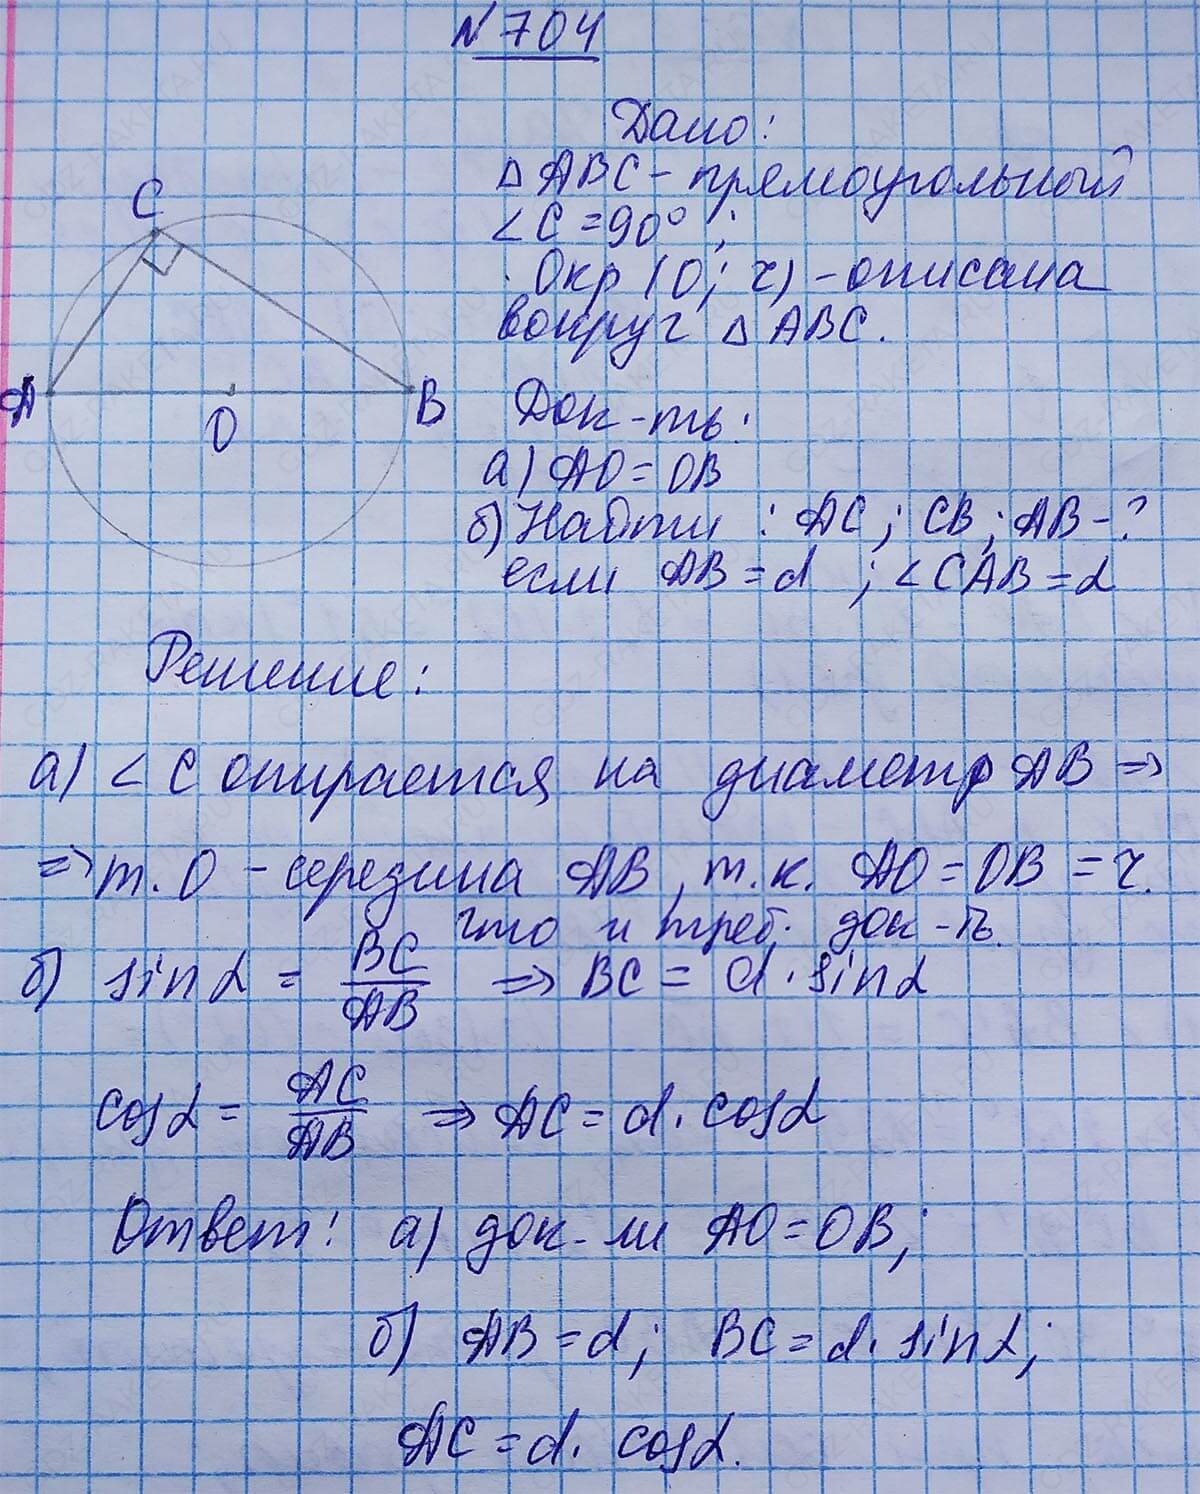 №704
Дано:
△ABC - прямоугольный
∠C = 90°;
Окр (O; r) - описана
вокруг △ABC.
C
A
O
B
Док-ть:
а) AO = OB
б) Найти: AC; CB; AB - ?
если AB = d; ∠CAB = α
Решение:
а) ∠C опирается на диаметр AB ⇒
⇒ т. O - середина AB, т.к. AO = OB = r.
что и треб. док-ть.
б) sin α = BC/AB ⇒ BC = d · sin α
cos α = AC/AB ⇒ AC = d · cos α
Ответ: а) док-ли AO = OB;
б) AB = d; BC = d · sin α;
AC = d · cos α.